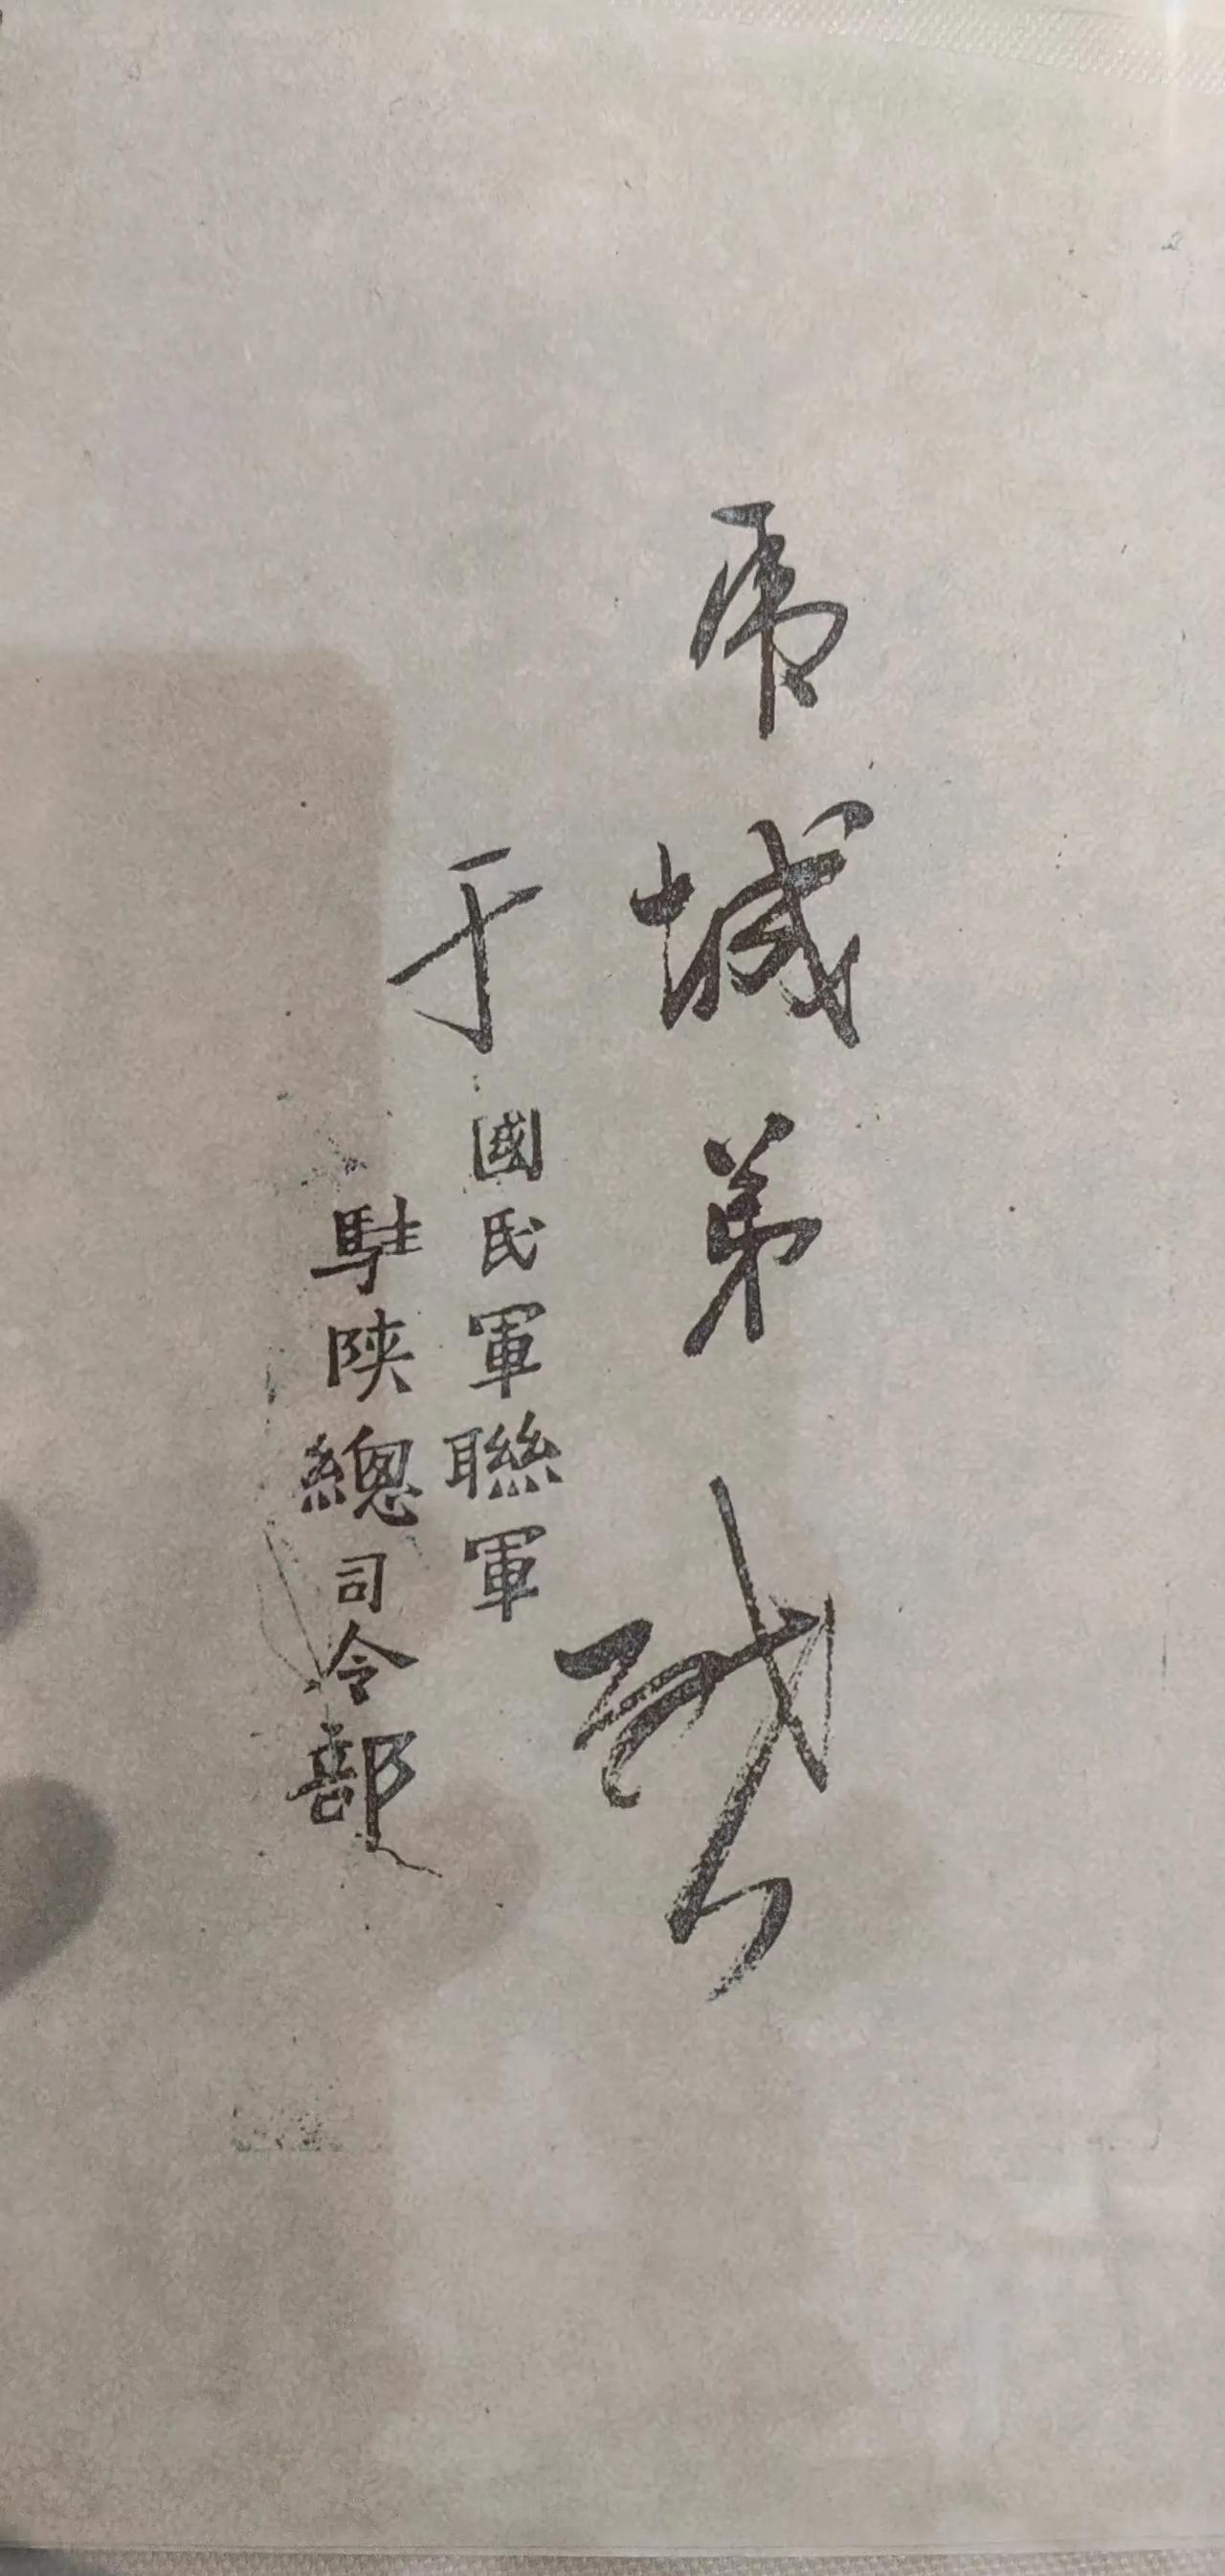 虎城弟啟
于
國民軍聯軍
駐陝總司令部